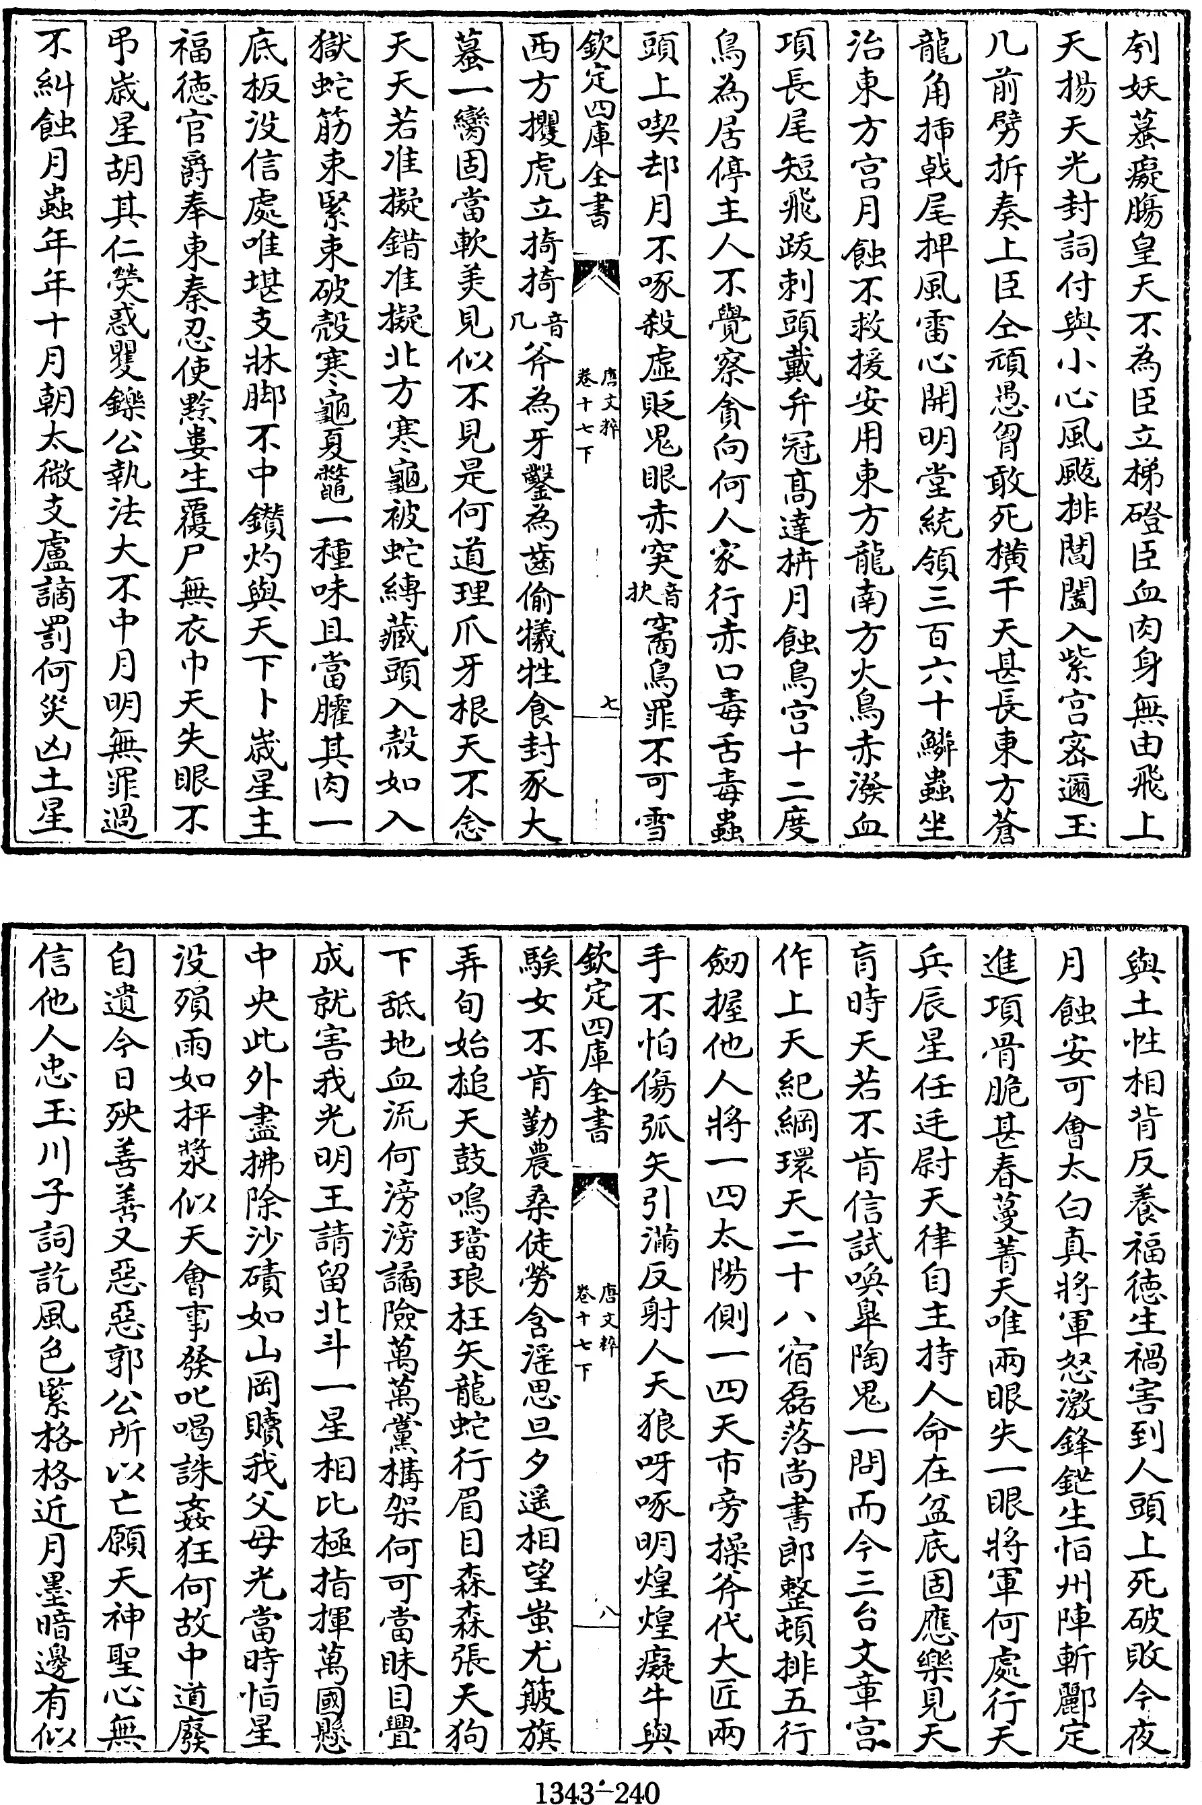 刳妖蟇癡腸皇天不為臣立梯磴臣血肉身無由飛上
天揚天光封詞付與小心風颷排閶闔入紫宫宻邇玉
几前劈拆奏上臣仝頑愚胷敢死横干天甚長東方蒼
龍角揷戟尾捭風雷心開明堂統領三百六十鱗蟲坐
治東方宫月蝕不救援安用東方龍南方火鳥赤潑血
項長尾短飛跋刺頭戴弁冠髙達枿月蝕鳥宫十二度
鳥為居停主人不覺察貪向何人家行赤口毒舌毒蟲
頭上喫却月不啄殺虚貶鬼眼赤突音抉窩鳥罪不可雪
欽定四庫全書 唐文粹 卷十七下 七
西方攫虎立掎掎音几斧為牙鑿為齒偷犧牲食封豕大
蟇一臠固當軟美見似不見是何道理爪牙根天不念
天天若准擬錯准擬北方寒龜被蛇縛藏頭入殻如入
獄蛇筋束緊束破殻寒龜夏鼈一種味且當臛其肉一
底板没信處唯堪支牀脚不中鑚灼與天下卜嵗星主
福徳官爵奉東秦忍使黔婁生覆尸無衣巾天失眼不
弔嵗星胡其仁熒惑矍鑠公執法大不中月明無罪過
不糾蝕月蟲年年十月朝太微支盧謫罰何災凶土星
與土性相背反養福徳生禍害到人頭上死破敗今夜
月蝕安可㑹太白真將軍怒激鋒鋩生恒州陣斬酈定
進項骨脆甚春蔓菁天唯兩眼失一眼將軍何處行天
兵辰星任廷尉天律自主持人命在盆底固應樂見天
肓時天若不肯信試喚臯陶鬼一問而今三台文章宫
作上天紀綱環天二十八宿磊落尚書郎整頓排五行
劒握他人將一四太陽側一四天市旁操斧代大匠兩
手不怕傷弧矢引滿反射人天狼呀啄明煌煌癡牛與
欽定四庫全書 唐文粹 卷十七下 八
騃女不肯勤農桑徒勞含淫思旦夕遥相望蚩尤簸旗
弄旬始搥天鼓鳴璫琅枉矢龍蛇行眉目森森張天狗
下舐地血流何滂滂譎險萬萬黨構架何可當眛目舋
成就害我光明王請留北斗一星相比極指揮萬國懸
中央此外盡掃除沙磧如山岡贖我父母光當時恒星
没殞雨如抨漿似天㑹事發叱喝誅姦狂何故中道廢
自遺今日殃善善又惡惡郭公所以亡願天神聖心無
信他人忠玉川子詞訖風色緊格格近月墨暗邊有似
1343-240